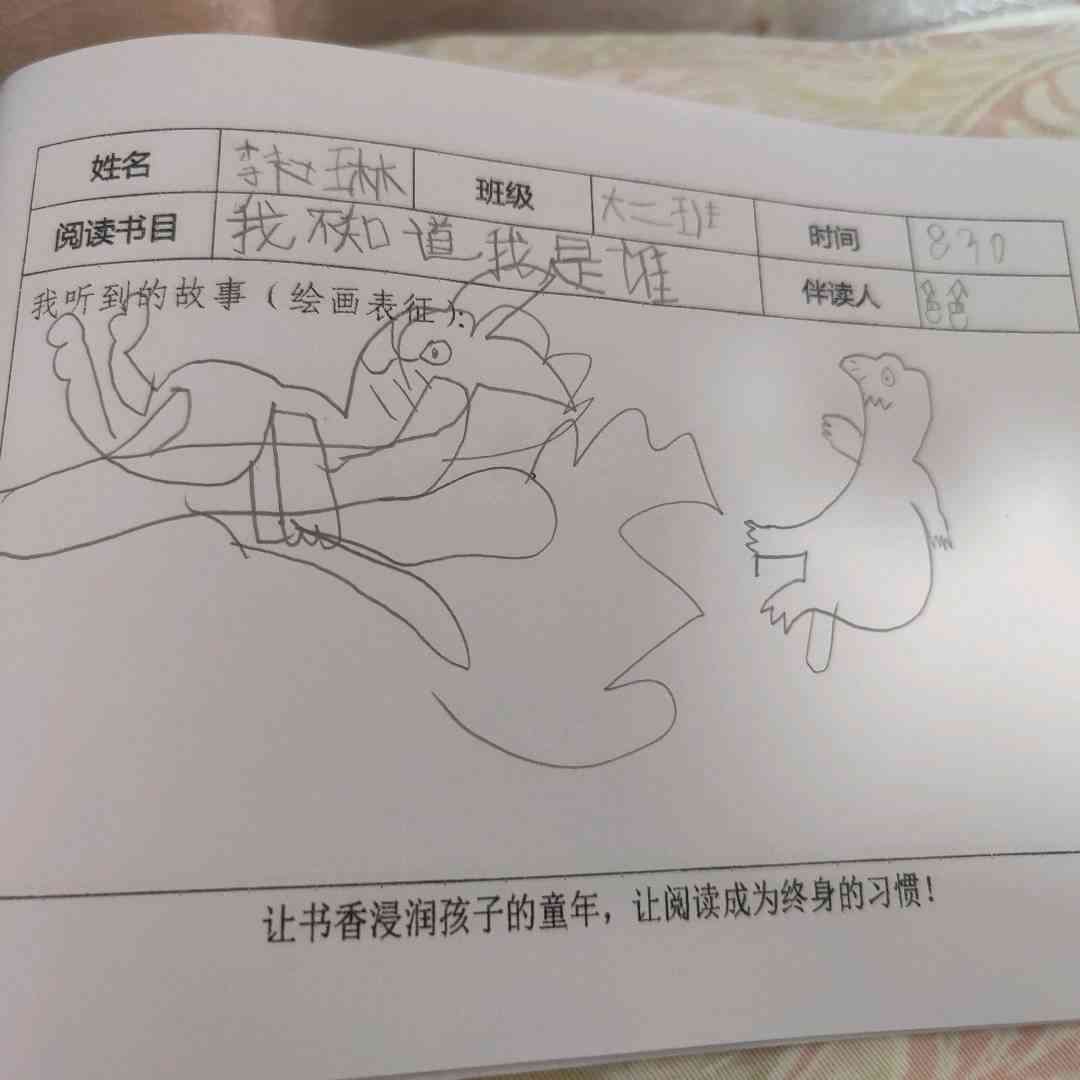 姓名 李 琳 班级 大二班 时间 830
阅读书目 我不知道我是谁 伴读人 爸爸
我听到的故事（绘画表征）：
让书香浸润孩子的童年，让阅读成为终身的习惯！